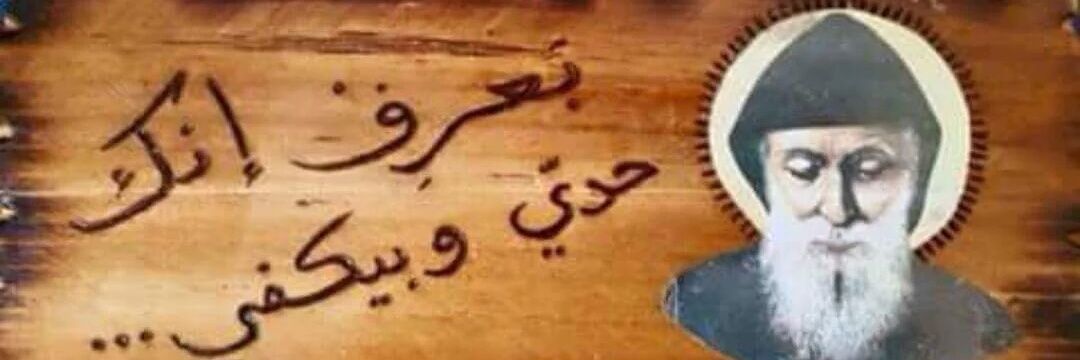 بَعرِف إنك
حدّي وبيكفي...